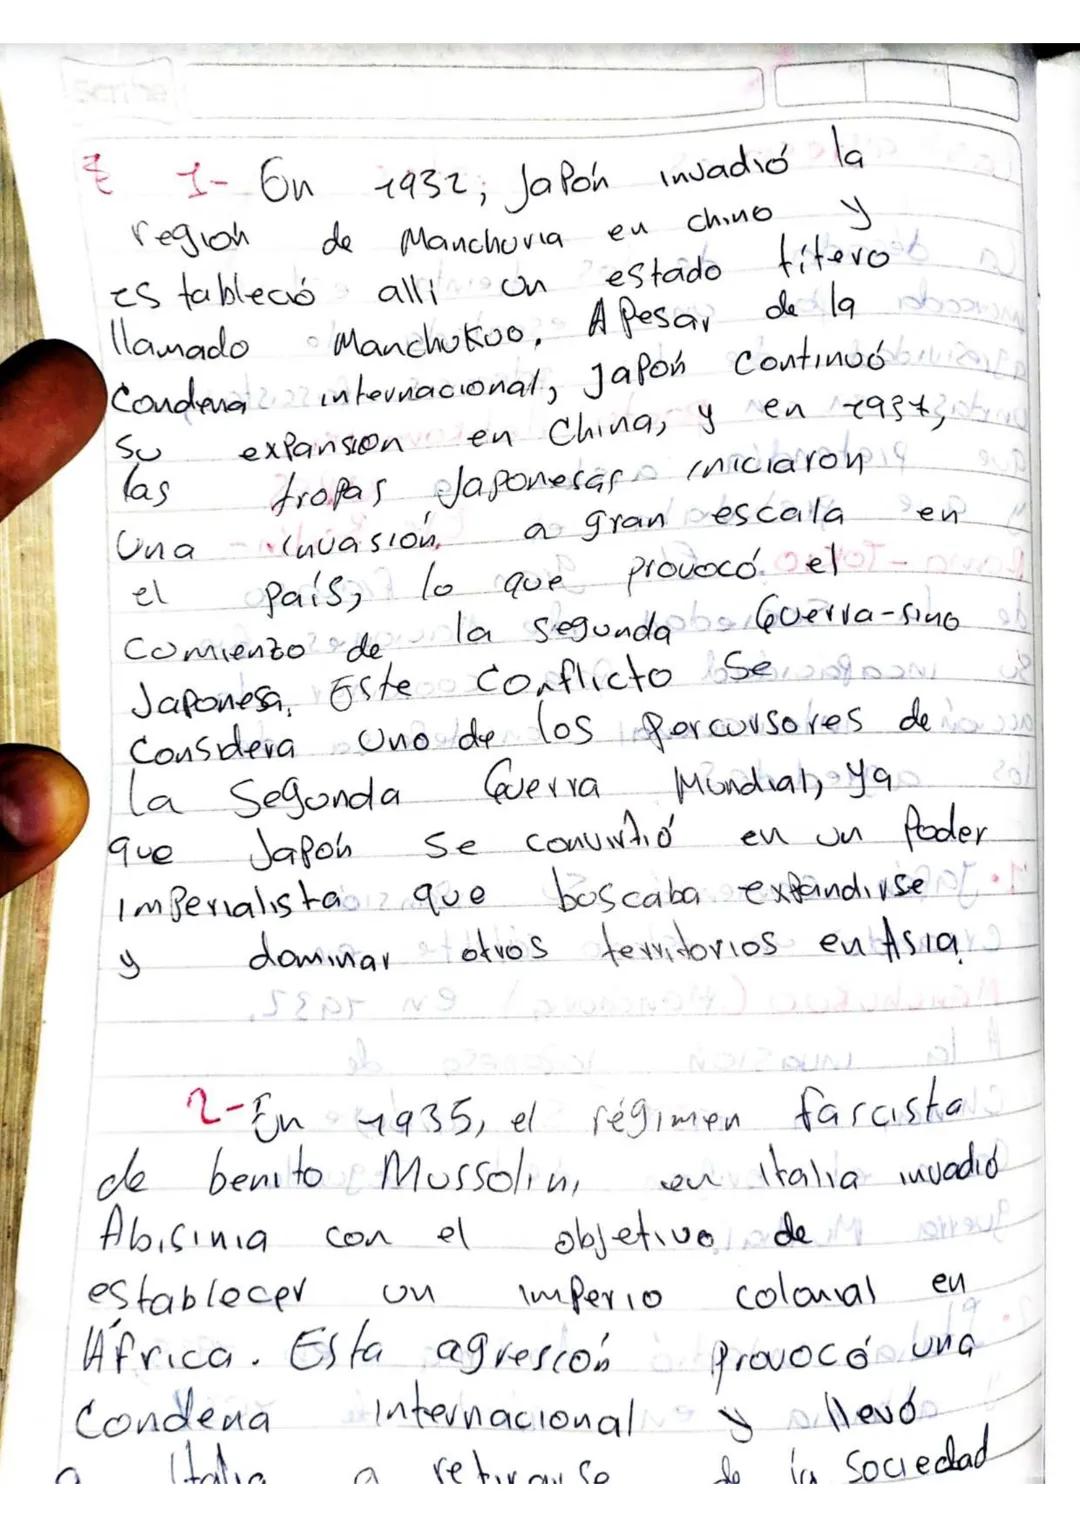 Scribe
1- En 1932, Japón invadió la
región de Manchuria en chino y
estableció allí un estado títero
llamado Manchukuo, Apesar de la
Condena internacional, Japón Continuó
su expansion en China, y en 1937,
las tropas Japonesas iniciaron
Una invasión, a gran escala en
el país, lo que provocó el
comienzo de la segunda Guerra-sino
Japonesa, Este Conflicto Se
Considera Uno de los percursores de
la Segunda Guerra Mundial, ya
que Japón se convirtió en un Poder
imperialista que buscaba expandirse
y dominar otros territorios en Asia.
2- En 1935, el régimen fascista
de benito Mussolini en italia invadió
Abisinia con el objetivo de
establecer un imperio colonial en
África. Esta agresión Provocó una
Condena internacional y llevó
a Italia a retirarse de la Sociedad